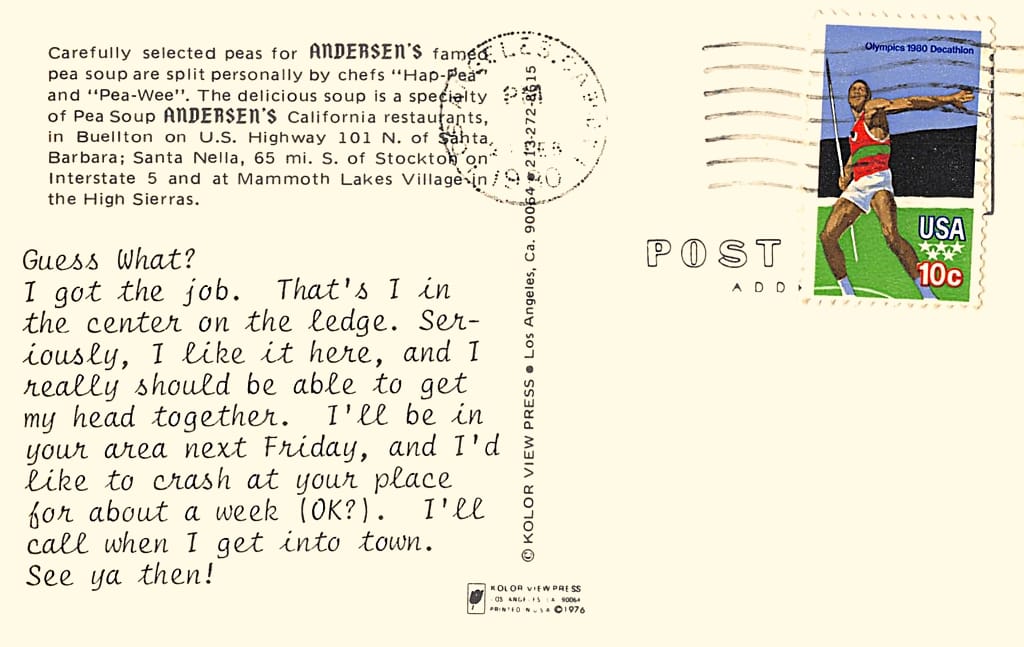 Carefully selected peas for ANDERSEN'S famed
pea soup are split personally by chefs "Hap-Pea"
and "Pea-Wee". The delicious soup is a specialty
of Pea Soup ANDERSEN'S California restaurants,
in Buellton on U.S. Highway 101 N. of Santa
Barbara; Santa Nella, 65 mi. S. of Stockton on
Interstate 5 and at Mammoth Lakes Village in
the High Sierras.
Guess What?
I got the job. That's I in
the center on the ledge. Ser-
iously, I like it here, and I
really should be able to get
my head together. I'll be in
your area next Friday, and I'd
like to crash at your place
for about a week (OK?). I'll
call when I get into town.
See ya then!
© KOLOR VIEW PRESS ● Los Angeles, Ca. 90064 ● 213-272-8615
KOLOR VIEW PRESS
90064
PRINTED N U S A ©1976
1980
POST
ADD
Olympics 1980 Decathlon
USA
10c